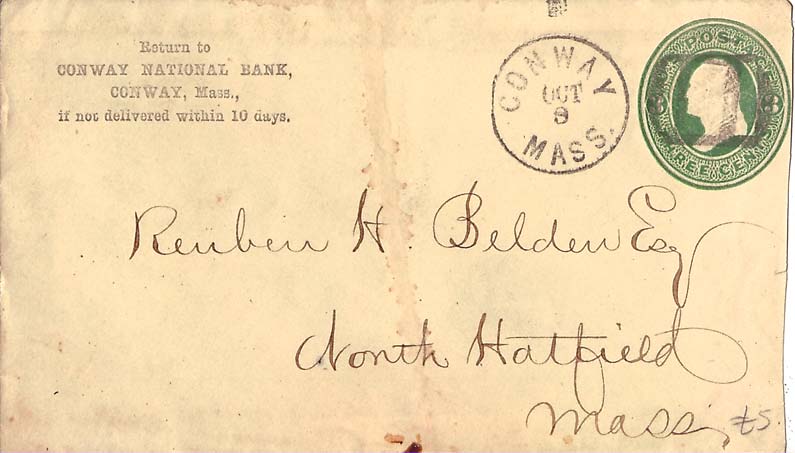 Return to
CONWAY NATIONAL BANK,
CONWAY, Mass.,
if not delivered within 10 days.
CONWAY
OCT
9
MASS.
POSTAGE
THREE CENTS
Reuben H. Belden Esq
North Hatfield
Mass.